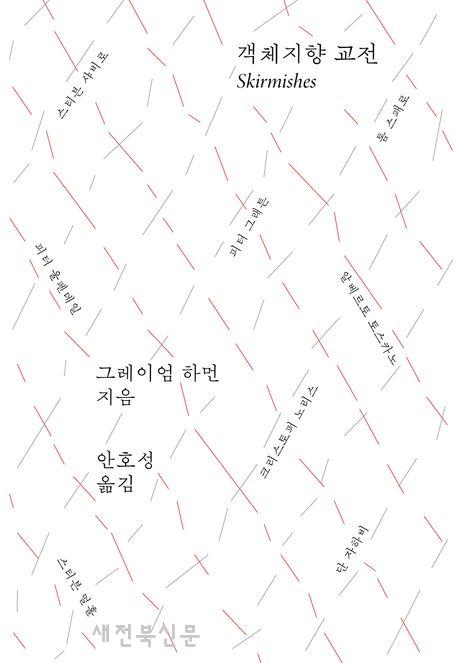 객체지향 교전
Skirmishes
스티븐 샤비로
톰 스패로
피터 그래튼
피터 울펜데일
알베르토 토스카노
그레이엄 하먼
지음
크리스토퍼 노리스
안호성
옮김
단 자하비
스티븐 멀홀
새전북신문